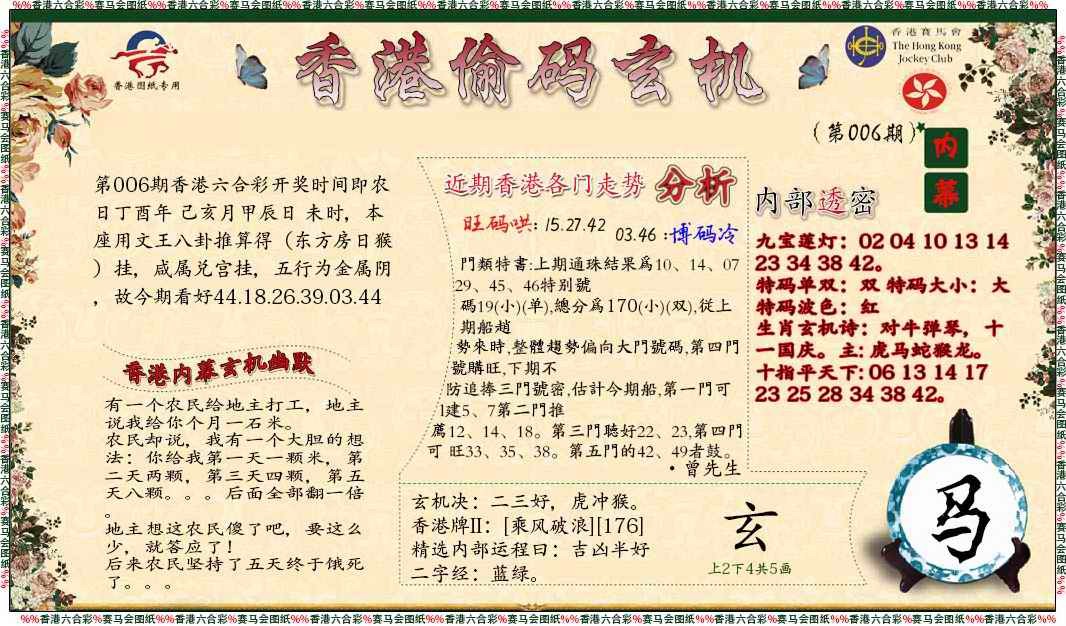 %%香港六合彩%赛马会图纸%%香港六合彩%赛马会图纸%%香港六合彩%赛马会图纸%%香港六合彩%赛马会图纸%%香港六合彩%赛马会图纸%%香港六合彩%赛马会图纸%%香港六合彩%%
香港图纸专用
香港偷码玄机
香港賽馬會
The Hong Kong
Jockey Club
(第006期)
内
幕
第006期香港六合彩开奖时间即农
日丁酉年 己亥月甲辰日 未时，本
座用文王八卦推算得（东方房日猴
）挂，咸属兑宫挂，五行为金属阴
，故今期看好44.18.26.39.03.44
香港内幕玄机幽默
有一个农民给地主打工，地主
说我给你个月一石米。
农民却说，我有一个大胆的想
法：你给我第一天一颗米，第
二天两颗，第三天四颗，第五
天八颗。。。后面全部翻一倍
。
地主想这农民傻了吧，要这么
少，就答应了！
后来农民坚持了五天终于饿死
了。。。
近期香港各门走势 分析
旺码哄: 15.27.42
03.46 :博码冷
門類特書:上期通珠結果爲10、14、07
29、45、46特别號
碼19(小)(单),總分爲170(小)(双),從上
期船趙
勢來時,整體趨勢偏向大門號碼,第四門
號購旺,下期不
防追捧三門號密,估计今期船,第一門可
1建5、7第二門推
薦12、14、18。第三門聴好22、23,第四門
可 旺33、35、38。第五門的42、49者鼓。
·曾先生
玄机决：二三好，虎冲猴。
香港牌II：[乘风破浪][176]
精选内部运程曰：吉凶半好
二字经：蓝绿。
玄
上2下4共5画
内部透密
九宝莲灯：02 04 10 13 14
23 34 38 42。
特码单双：双 特码大小：大
特码波色：红
生肖玄机诗：对牛弹琴，十
一国庆。主: 虎马蛇猴龙。
十指平天下: 06 13 14 17
23 25 28 34 38 42。
马
%%香港六合彩%赛马会图纸%%香港六合彩%赛马会图纸%%香港六合彩%赛马会图纸%%香港六合彩%赛马会图纸%%香港六合彩%赛马会图纸%%香港六合彩%赛马会图纸%%香港六合彩%%